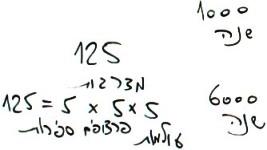 1000
שנה
125
מדרגות
125 = 5 × 5 × 5
עולמות פרצופים ספירות
6000
שנה